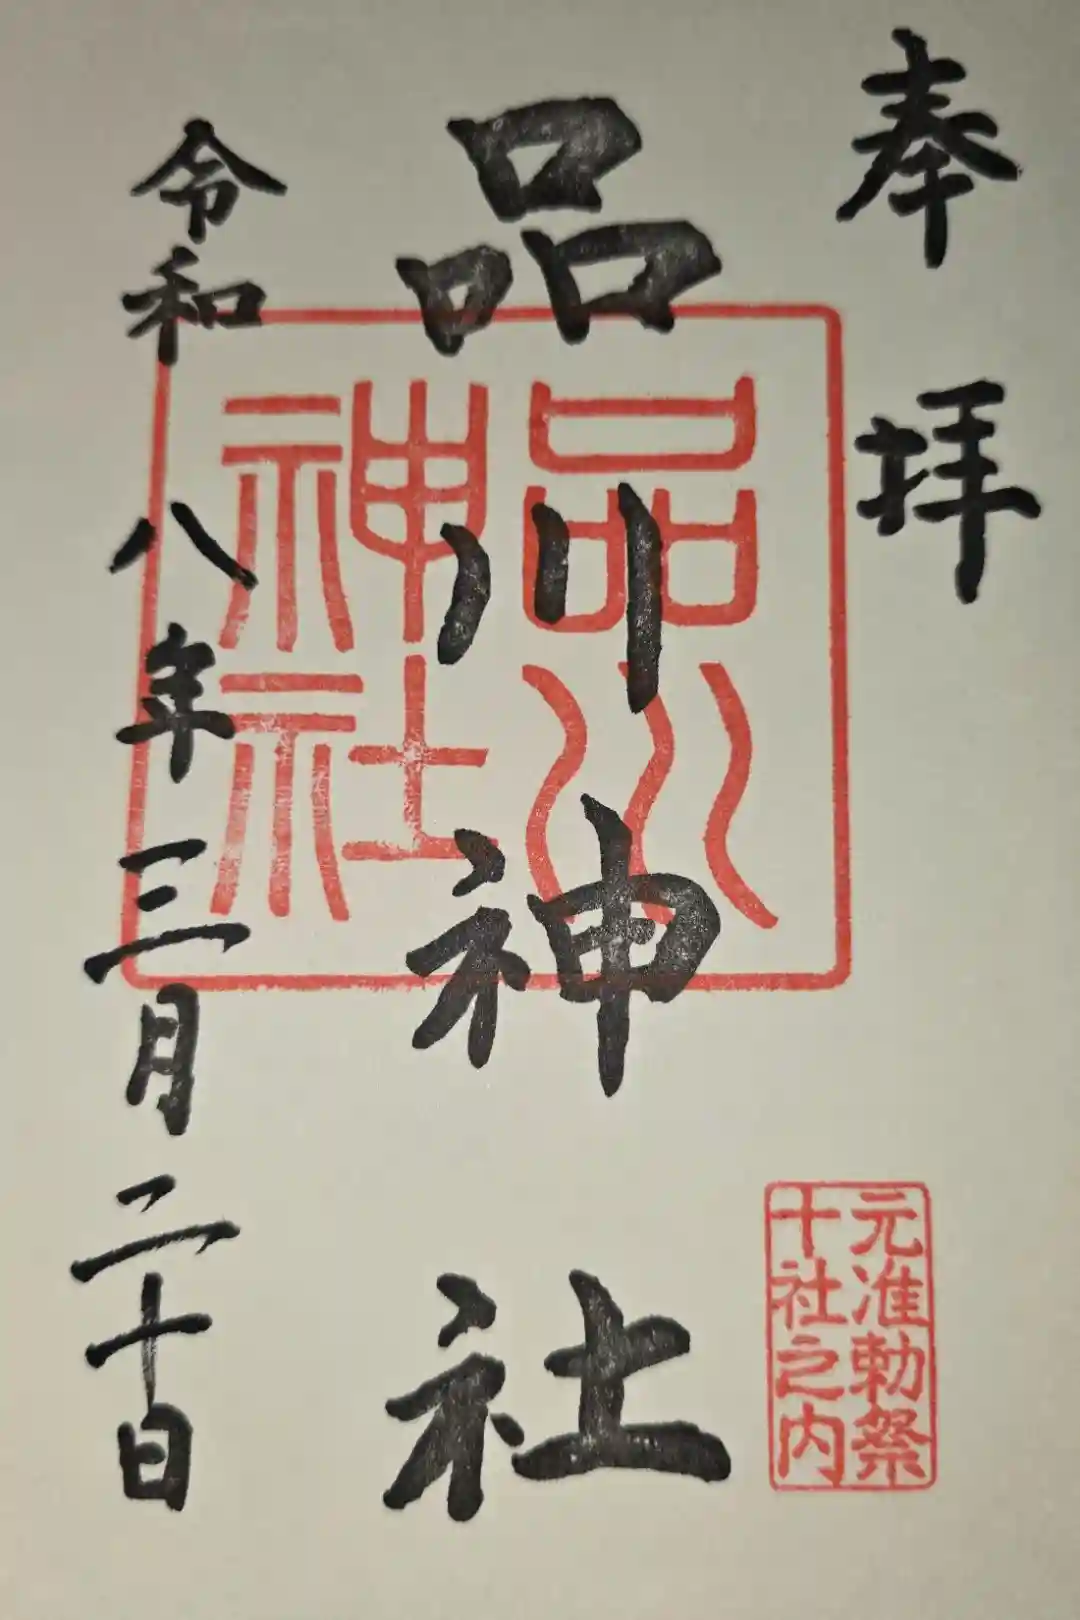 奉拝
品川神社
品川
神社
元准勅祭
十社之内
令和八年三月二十日